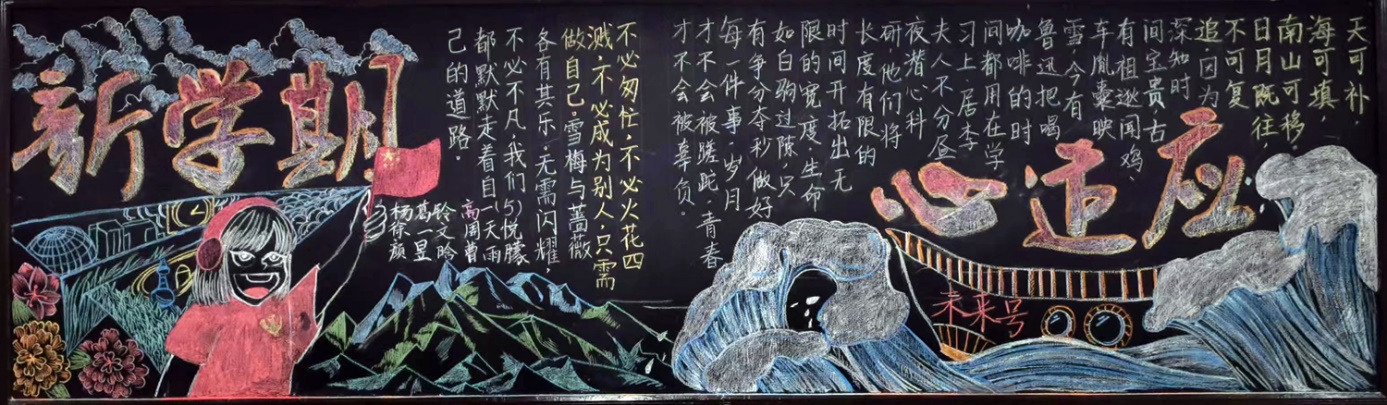 新学期
心适应
天可补，
海可填，
南山可移，
日月既往，
不可复
追因为
深知时
间宝贵古
有祖逖闻鸡，
车胤囊映
雪，今有
鲁迅把喝
咖啡的时
间都用在学
习上，居李
夫人不分昼
夜潜心科
研，他们将
长度有限的
时间开拓出无
限的宽度，生命
如白驹过隙，只
有争分夺秒做好
每一件事，岁月
才不会被蹉跎，青春
才不会被辜负。
不必匆忙，不必火花四
溅，不必成为别人，只需
做自己。雪梅与蔷薇
各有其乐，无需闪耀，
不必不凡，我们
都默默走着自
己的道路。
高一(5)
未来号